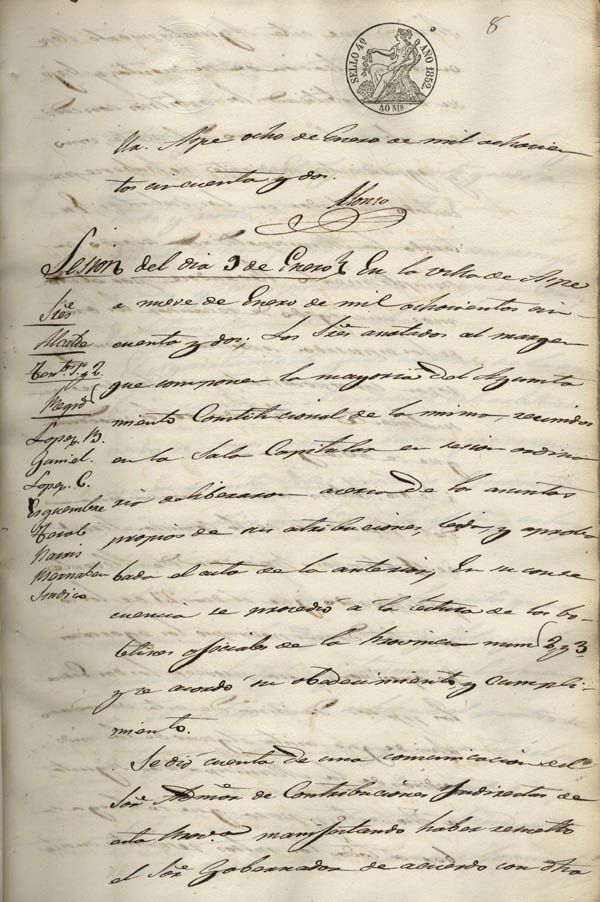 8
SELLO 4º AÑO 1852.
40 Ms
Aspe ocho de Enero de mil ochocien
tos cincuenta y dos.
Alonso
Sesion del dia 9 de Enero En la villa de Aspe
a nueve de Enero de mil ochocientos cin-
cuenta y dos; Los Sres anotados al margen
que componen la mayoria del Ayunta
miento Constitucional de la misma, reunidos
en la Sala Capitular en sesion ordina
ria deliberaron acerca de los asuntos
propios de sus atribuciones, leida, y aproba
bada el acta de la anterior; En su conse
cuencia se procedió a la lectura de los bo-
letines oficiales de la Provincia num 2 y 3
y se acordó su obedecimiento y cumpli-
miento.
Se dió cuenta de una comunicacion del
Señr Admor de Contribuciones Indirectas de
esta Prova manifestando haber resuelto
el Señr Gobernador de acuerdo con otra
Sres
Alcalde
Tents 1º y 2º
Regid
Lopez B.
Daniel
Lopez C.
Esquembre
Bernabeu
Sindico